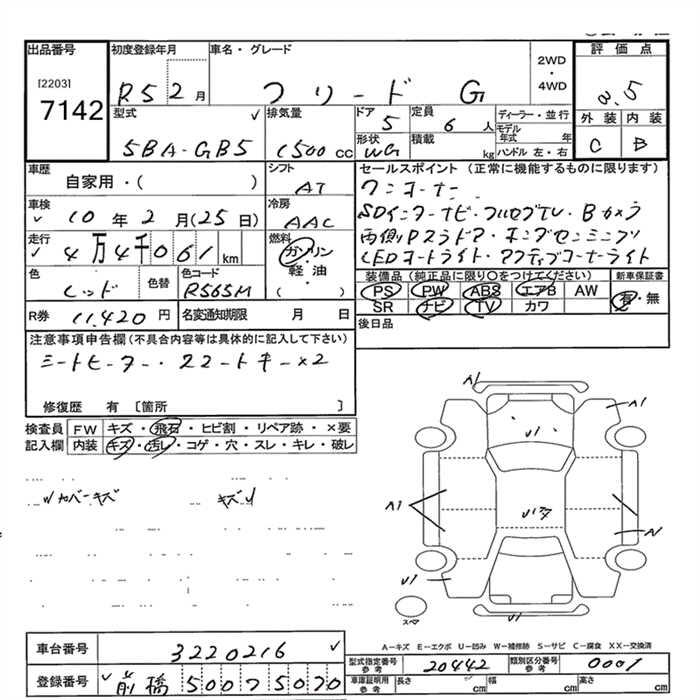 出品番号 初度登録年月 車名・グレード 2WD・4WD 評価点
[2203] 7142 R5 2月 フリード G 3.5
型式 排気量 ドア 定員 ディーラー・並行 外装 内装
5BA-GB5 1500cc 5 6人 モデル年式 年 C B
形状 WG 積載 kg ハンドル 左・右
車歴 自家用・( ) シフト AT セールスポイント (正常に機能するものに限ります)
ワンオーナー
車検 10年2月(25日) 冷房 AAC SDインターナビ・フルセグTV・Bカメラ
走行 4万4千061km 燃料 ガソリン・軽油( ) 両側Pスラドア・ホンダセンシング
LEDオートライト・アクティブコーナーライト
色 レッド 色替 色コード R565M 装備品(純正品に限り○をつけてください) 新車保証書
PS PW ABS エアB AW 有・無
SR ナビ TV カワ
R券 11,420円 名変通知期限 月 日 後日品
注意事項申告欄(不具合内容等は具体的に記入して下さい)
シートヒーター・スマートキー×2
修復歴 有 [箇所 ]
検査員記入欄 FW キズ・飛石・ヒビ割・リペア跡・×要
内装 キズ・汚レ・コゲ・穴・スレ・キレ・破レ
カバーキズ キズU
A1 A1
U1
A1 U1
U1
U1
スペア
A-キズ E-エクボ U-凹み W-補修跡 S-サビ C-腐食 XX-交換済
車台番号 3220216 型式指定番号 参考 20442 類別区分番号 参考 0001
登録番号 前橋 500 た 5070 車庫証明用 参考 長さ cm 幅 cm 高さ cm